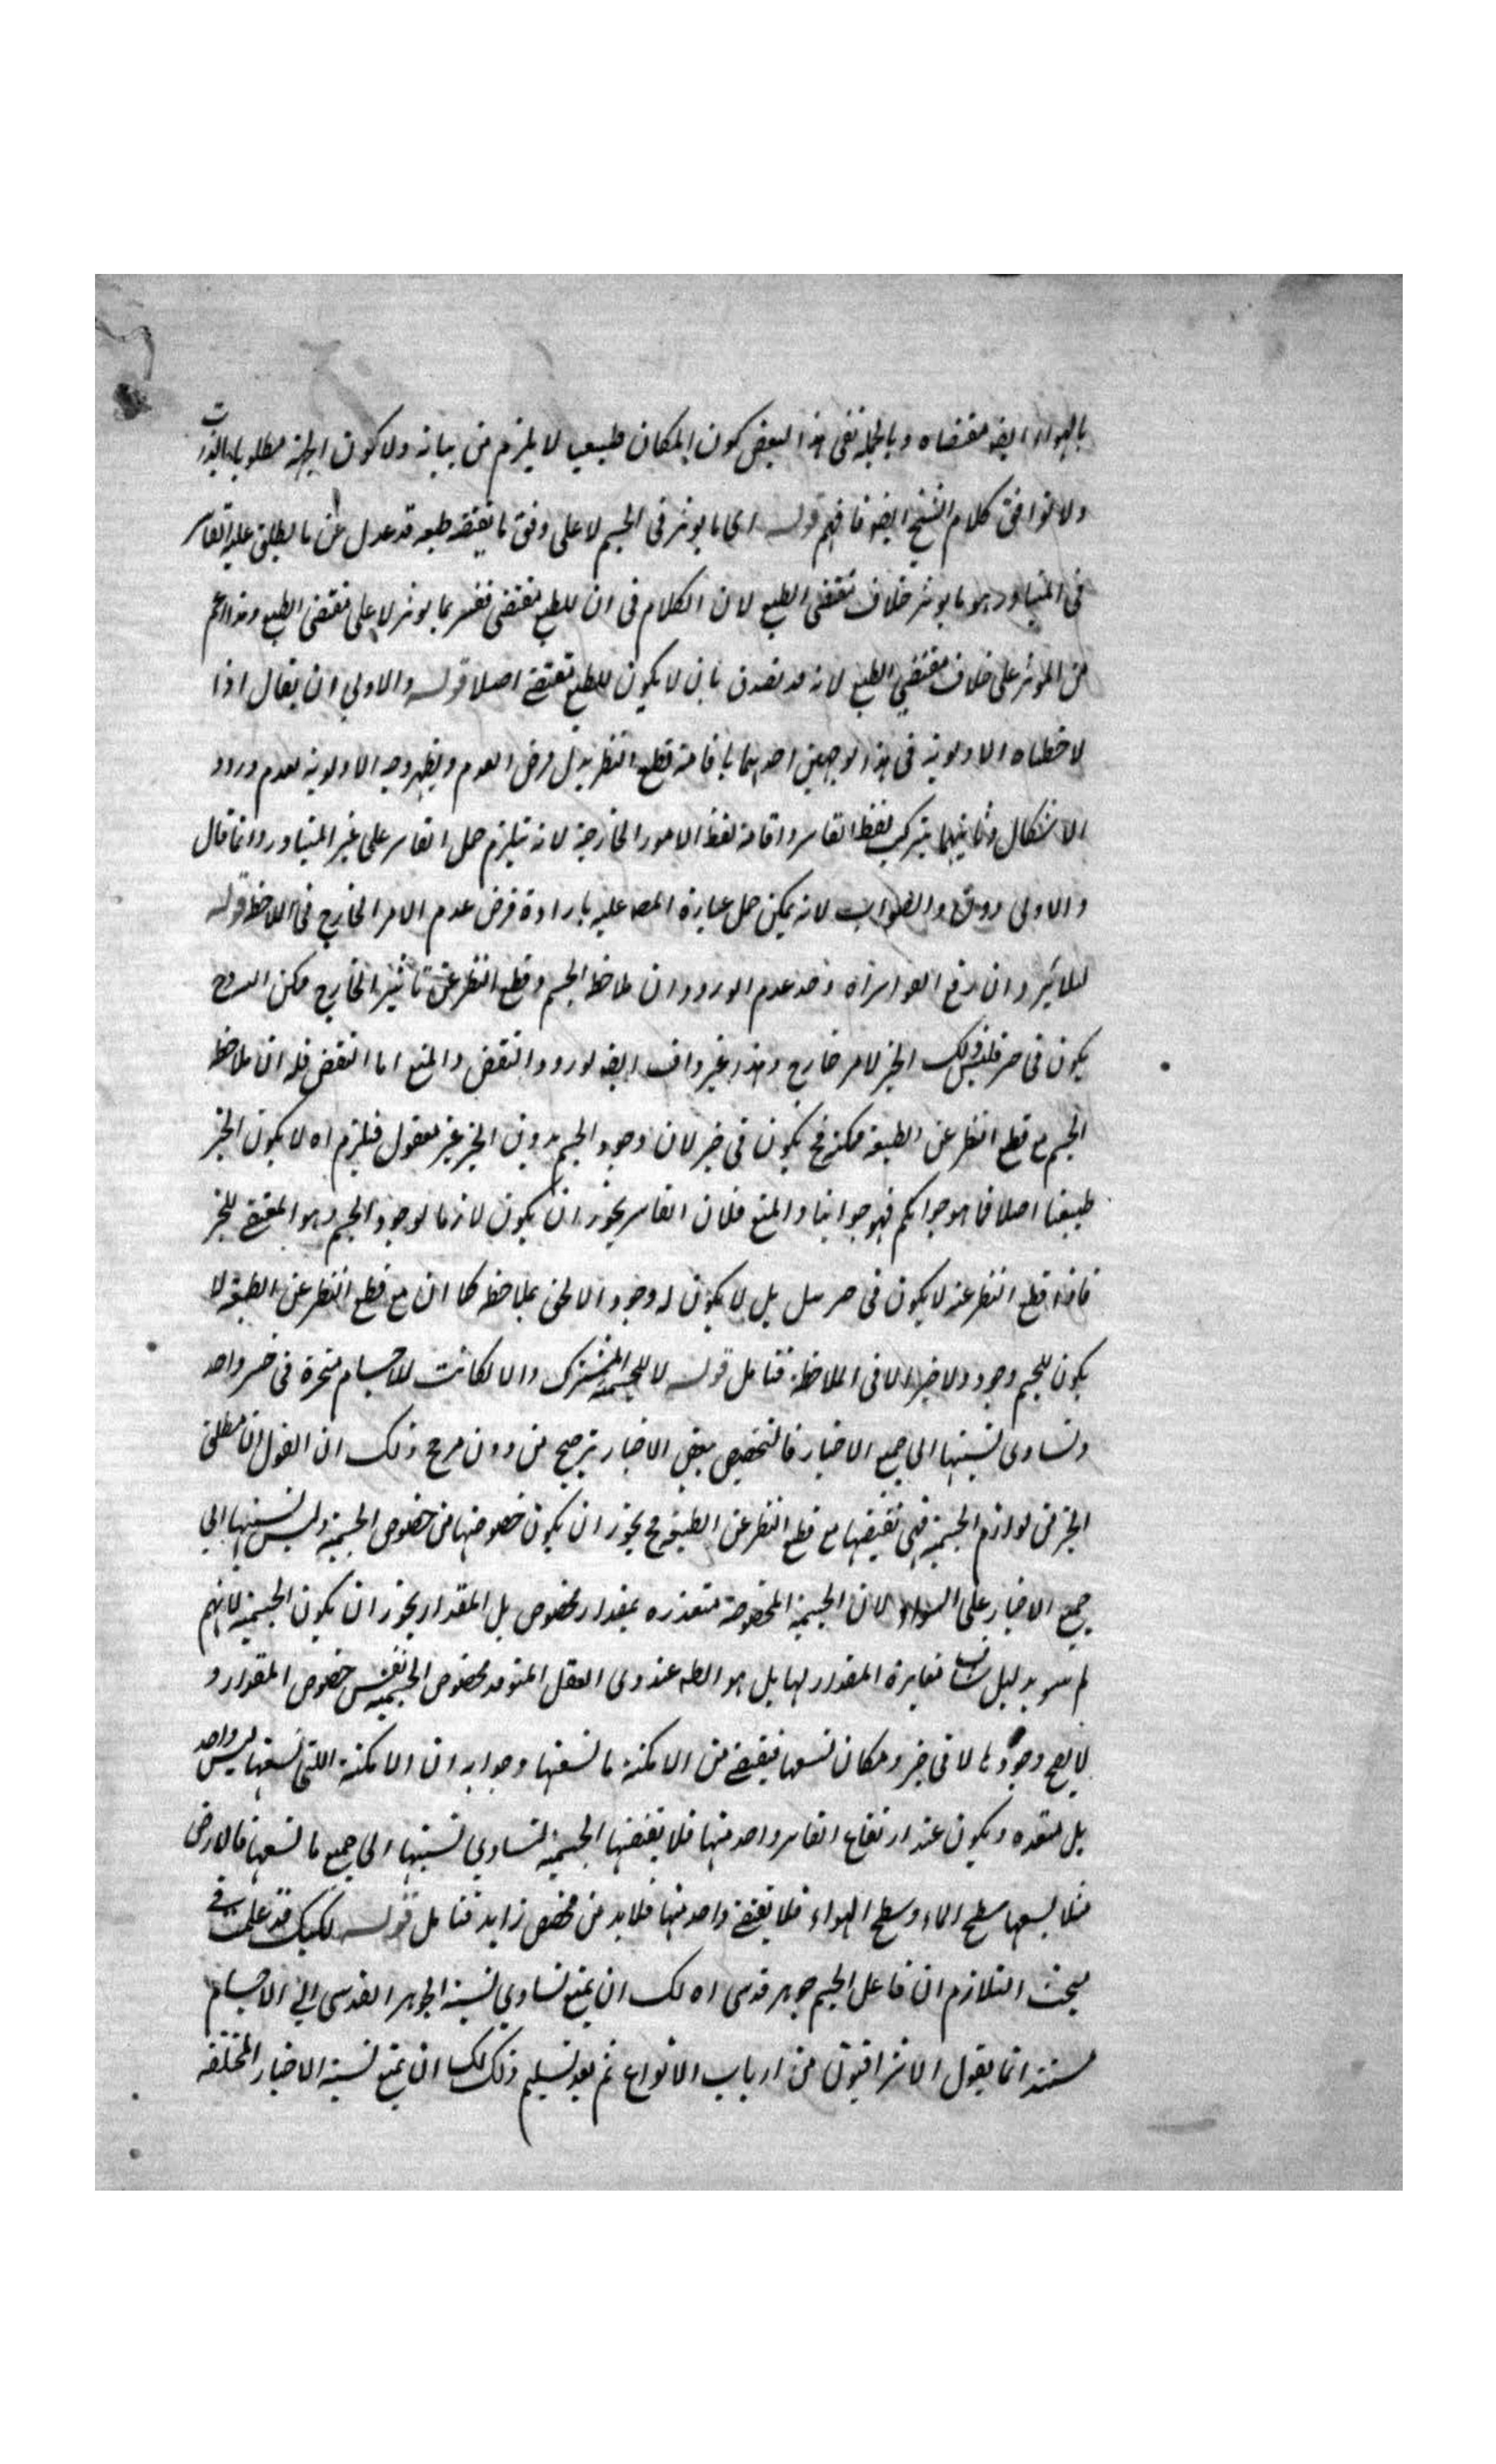 بالهواء ايضا مقتضاه وبالجملة نفى هذا البعض كون المكان طبيعيا لا يلزم من بيانه ولا كون الجهة مطلوبا بالذات
ولا توافق كلام الشيخ ايضا فافهم قوله اى ما يوثر فى الجسم لا على وفق ما يقتضيه طبعه قد عدل عن ما يطلق عليه القاسر
فى المتبادر وهو ما يوثر خلاف مقتضى الطبع لان الكلام فى ان للطبع مقتضى ففسر بما يوثر لا على مقتضى الطبع وهو اعم
من الموثر على خلاف مقتضى الطبع لانه قد يصدق بان لا يكون للطبع مقتضى اصلا قوله والاولى ان يقال اذا
لاحظناه الاولوية فى هذا الوجهين احدهما باقامة قطع النظر بدل فرض العدم ويظهر وجه الاولوية لعدم ورود
الاشكال وثانيهما بترك لفظ القاسر واقامة لفظ الامور الخارجية لانه يلزم حمل القاسر على غير المتبادر وانما قال
والاولى دون والصواب لانه يمكن حمل عبارة المصـ عليه بارادة فرض عدم الامر الخارج فى اللاحظ قوله
وان رفع وجه عدم الورود ان ملاحظ الجسم وقطع النظر عن تاثير الخارج ممكن
يكون فى الحيز لامر خارج وهذا غير واف ايضا لورود النقض والمنع اما النقض فله ان ملاحظ
الجسم مع قطع النظر عن الطبيعة ممكنة فح يكون فى حيز لان وجود الجسم بدون الحيز غير معقول فيلزم ان لا يكون الحيز
طبيعيا اصلا فما هو جوابكم فهو جوابنا والمنع فلان القاسر يجوز ان يكون لازما لوجود الجسم وهو المقتضى للحيز
فاذا قطع النظر عنه لا يكون فى حيز بل لا يكون له وجود الا فى ملاحظة كما ان مع قطع النظر عن الطبيعة لا
يكون للجسم وجود ولا حيز الا فى الملاحظة فتامل قوله لا للجسمية المشترك والا لكانت للاجسام متحيزة فى حيز واحد
وتساوى نسبتها الى جميع الاحياز فالتخصيص ببعض الاحياز ترجيح من دون مرجح ولك ان القول ان مطلق
الحيز من لوازم الجسمية فهى تقتضيها مع قطع النظر عن الطبيعة فح يجوز ان يكون خصوصها من خصوص الجسمية وليس نسبتها الى
جميع الاحياز على السواء لان الجسمية المخصوصة متقدره بمقدار مخصوص بل المقدار يجوز ان يكون الجسمية لانهم
لم بدليل شاف مغايرة المقدار لها بل هو الظـ عند وى العقل المتوقد مخصوص الجسمية نفس خصوص المقدار و
لا يصح وجودها الا فى حيز ومكان تسعها فيقتضى من الامكنة ما تسعها وجوابه ان الامكنة اللتى تسعها ليس واحد
بل متعدده ويكون عند ارتفاع القاسر واحد منها فلا يقتضيها الجسمية لتساوى نسبتها الى جميع ما تسعها فالارض
مثلا يسعها سطح الماء وسطح الهواء فلا يقتضى واحد منها فلا بد من مخصص زايد فتامل قوله لكنك قد علمت فى
مبحث التلازم ان فاعل الجسم جوهر قدسى اه لك ان تمنع تساوى نسبة الجوهر القدسى الى الاجسام
مستندا بما يقول الاشراقيون من ارباب الانواع ثم بعد تسليم ذلك لك ان تمنع نسبة الاحياز المختلفه